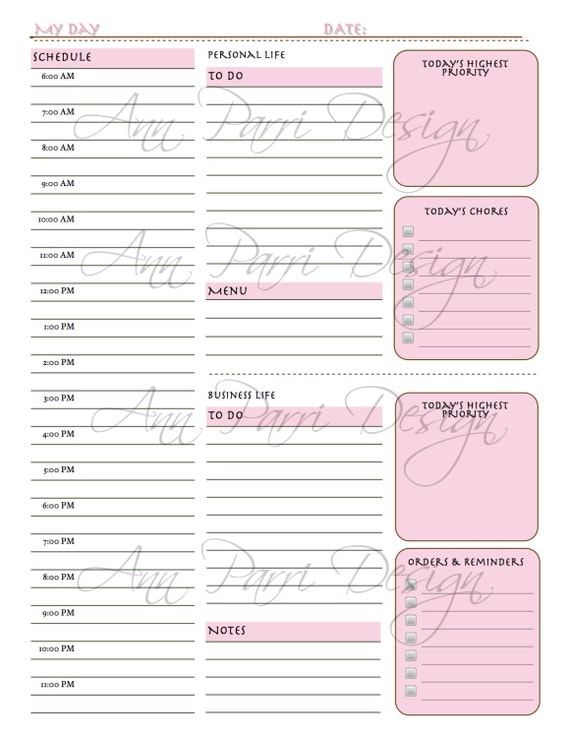 MY DAY DATE:
SCHEDULE
6:00 AM
7:00 AM
8:00 AM
9:00 AM
10:00 AM
11:00 AM
12:00 PM
1:00 PM
2:00 PM
3:00 PM
4:00 PM
5:00 PM
6:00 PM
7:00 PM
8:00 PM
9:00 PM
10:00 PM
11:00 PM
PERSONAL LIFE
TO DO
MENU
BUSINESS LIFE
TO DO
NOTES
TODAY'S HIGHEST
PRIORITY
TODAY'S CHORES
TODAY'S HIGHEST
PRIORITY
ORDERS & REMINDERS
Ann Parri Design
Ann Parri Design
Ann Parri Design
Ann Parri Design